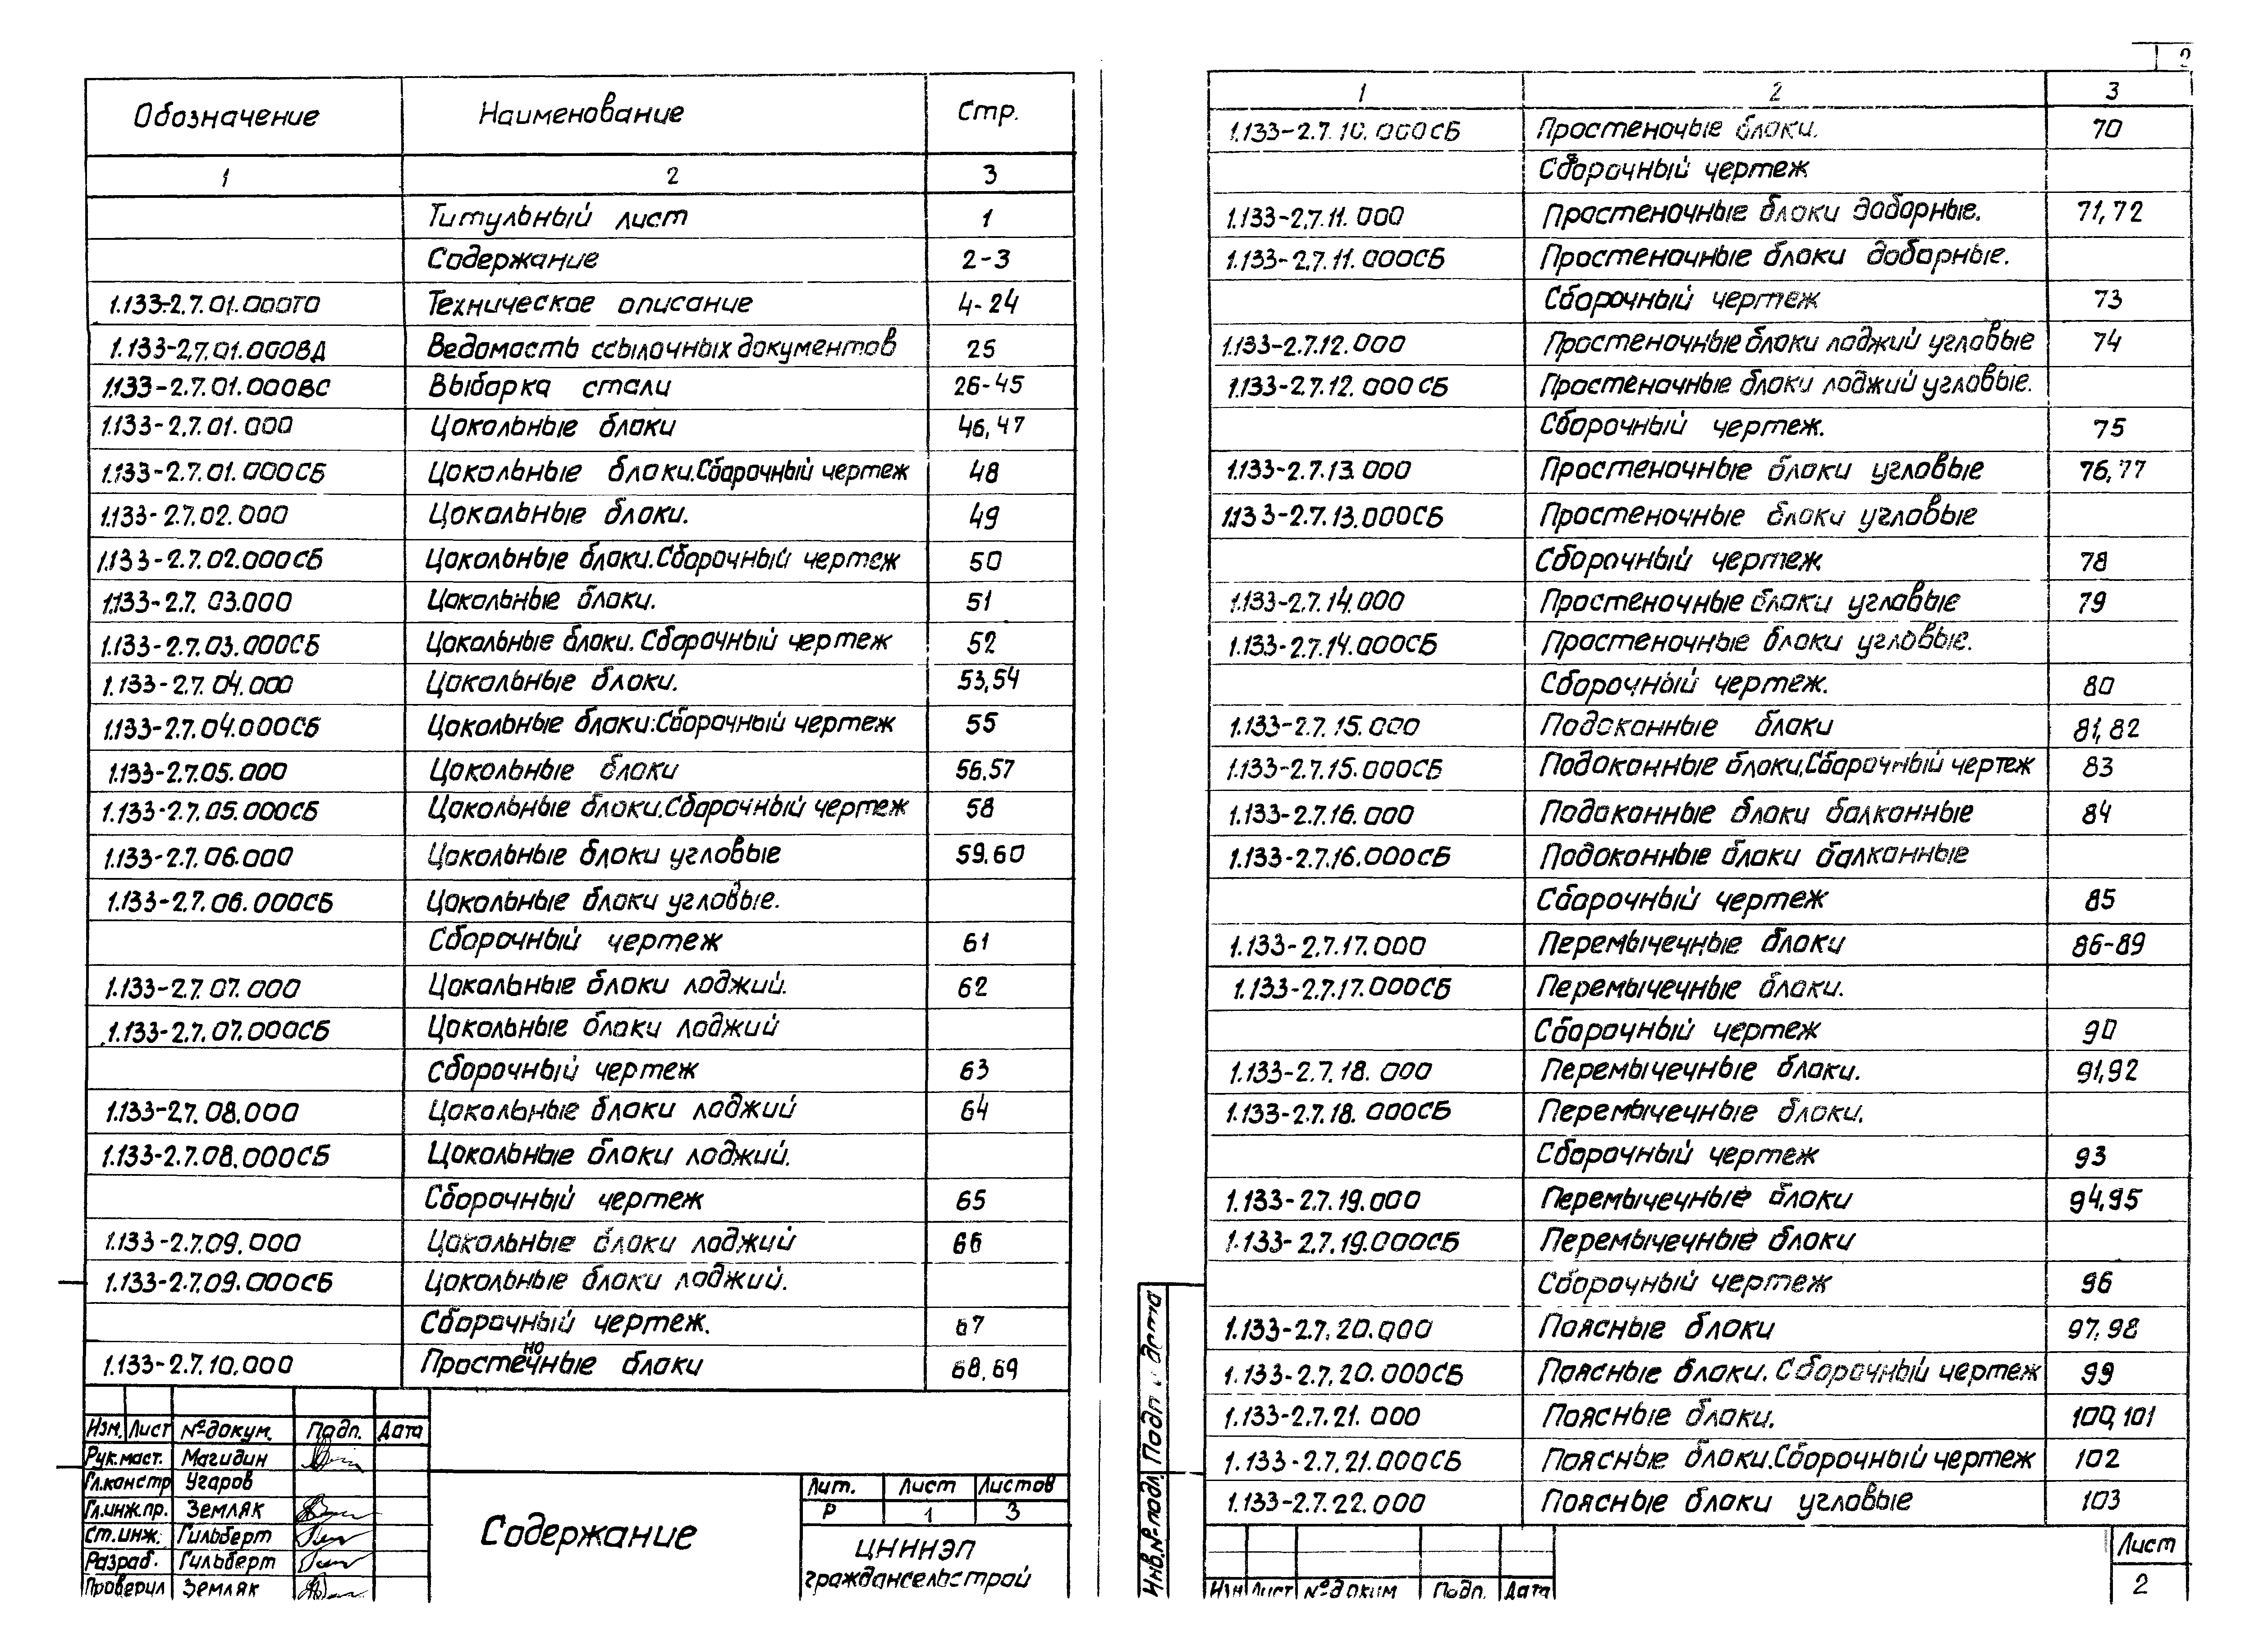 Обозначение Наименование Стр.
1 2 3
Титульный лист 1
Содержание 2-3
1.133-2.7.01.000ТО Техническое описание 4-24
1.133-2.7.01.000ВД Ведомость ссылочных документов 25
1.133-2.7.01.000ВС Выборка стали 26-45
1.133-2.7.01.000 Цокольные блоки 46,47
1.133-2.7.01.000СБ Цокольные блоки.Сборочный чертеж 48
1.133-2.7.02.000 Цокольные блоки. 49
1.133-2.7.02.000СБ Цокольные блоки.Сборочный чертеж 50
1.133-2.7.03.000 Цокольные блоки. 51
1.133-2.7.03.000СБ Цокольные блоки. Сборочный чертеж 52
1.133-2.7.04.000 Цокольные блоки. 53,54
1.133-2.7.04.000СБ Цокольные блоки.Сборочный чертеж 55
1.133-2.7.05.000 Цокольные блоки 56,57
1.133-2.7.05.000СБ Цокольные блоки.Сборочный чертеж 58
1.133-2.7.06.000 Цокольные блоки угловые 59.60
1.133-2.7.06.000СБ Цокольные блоки угловые.
Сборочный чертеж 61
1.133-2.7.07.000 Цокольные блоки лоджий. 62
1.133-2.7.07.000СБ Цокольные блоки лоджий
сборочный чертеж 63
1.133-2.7.08.000 Цокольные блоки лоджий 64
1.133-2.7.08.000СБ Цокольные блоки лоджий.
Сборочный чертеж 65
1.133-2.7.09.000 Цокольные блоки лоджий 66
1.133-2.7.09.000СБ Цокольные блоки лоджий.
Сборочный чертеж. 67
1.133-2.7.10.000 Простеночные блоки 68,69
Изм. Лист №докум. Подп. Дата
Рук.маст. Магидин
Гл.констр Угаров
Гл.инж.пр. Земляк
Ст.инж. Гильберт
Разраб. Гильберт
Проверил Земляк
Содержание
Лит. Лист Листов
Р 1 3
ЦНИИЭП
граждансельстрой
2
1 2 3
1.133-2.7.10.000СБ Простеночые блоки. 70
Сборочный чертеж
1.133-2.7.11.000 Простеночные блоки доборные. 71,72
1.133-2.7.11.000СБ Простеночные блоки доборные.
Сборочный чертеж 73
1.133-2.7.12.000 Простеночные блоки лоджий угловые 74
1.133-2.7.12.000СБ Простеночные блоки лоджий угловые.
Сборочный чертеж. 75
1.133-2.7.13.000 Простеночные блоки угловые 76,77
1.133-2.7.13.000СБ Простеночные блоки угловые
Сборочный чертеж 78
1.133-2.7.14.000 Простеночные блоки угловые 79
1.133-2.7.14.000СБ Простеночные блоки угловые.
Сборочный чертеж. 80
1.133-2.7.15.000 Подоконные блоки 81,82
1.133-2.7.15.000СБ Подоконные блоки,Сборочный чертеж 83
1.133-2.7.16.000 Подоконные блоки балконные 84
1.133-2.7.16.000СБ Подоконные блоки балконные
Сборочный чертеж 85
1.133-2.7.17.000 Перемычечные блоки 86-89
1.133-2.7.17.000СБ Перемычечные блоки.
Сборочный чертеж 90
1.133-2.7.18.000 Перемычечные блоки. 91,92
1.133-2.7.18.000СБ Перемычечные блоки.
Сборочный чертеж 93
1.133-2.7.19.000 Перемычечные блоки 94,95
1.133-2.7.19.000СБ Перемычечные блоки
Сборочный чертеж 96
1.133-2.7.20.000 Поясные блоки 97,98
1.133-2.7.20.000СБ Поясные блоки. Сборочный чертеж 99
1.133-2.7.21.000 Поясные блоки. 100,101
1.133-2.7.21.000СБ Поясные блоки.Сборочный чертеж 102
1.133-2.7.22.000 Поясные блоки угловые 103
Инв.№подл. Подп и дата
Изм Лист №доким Подп. Дата
Лист
2